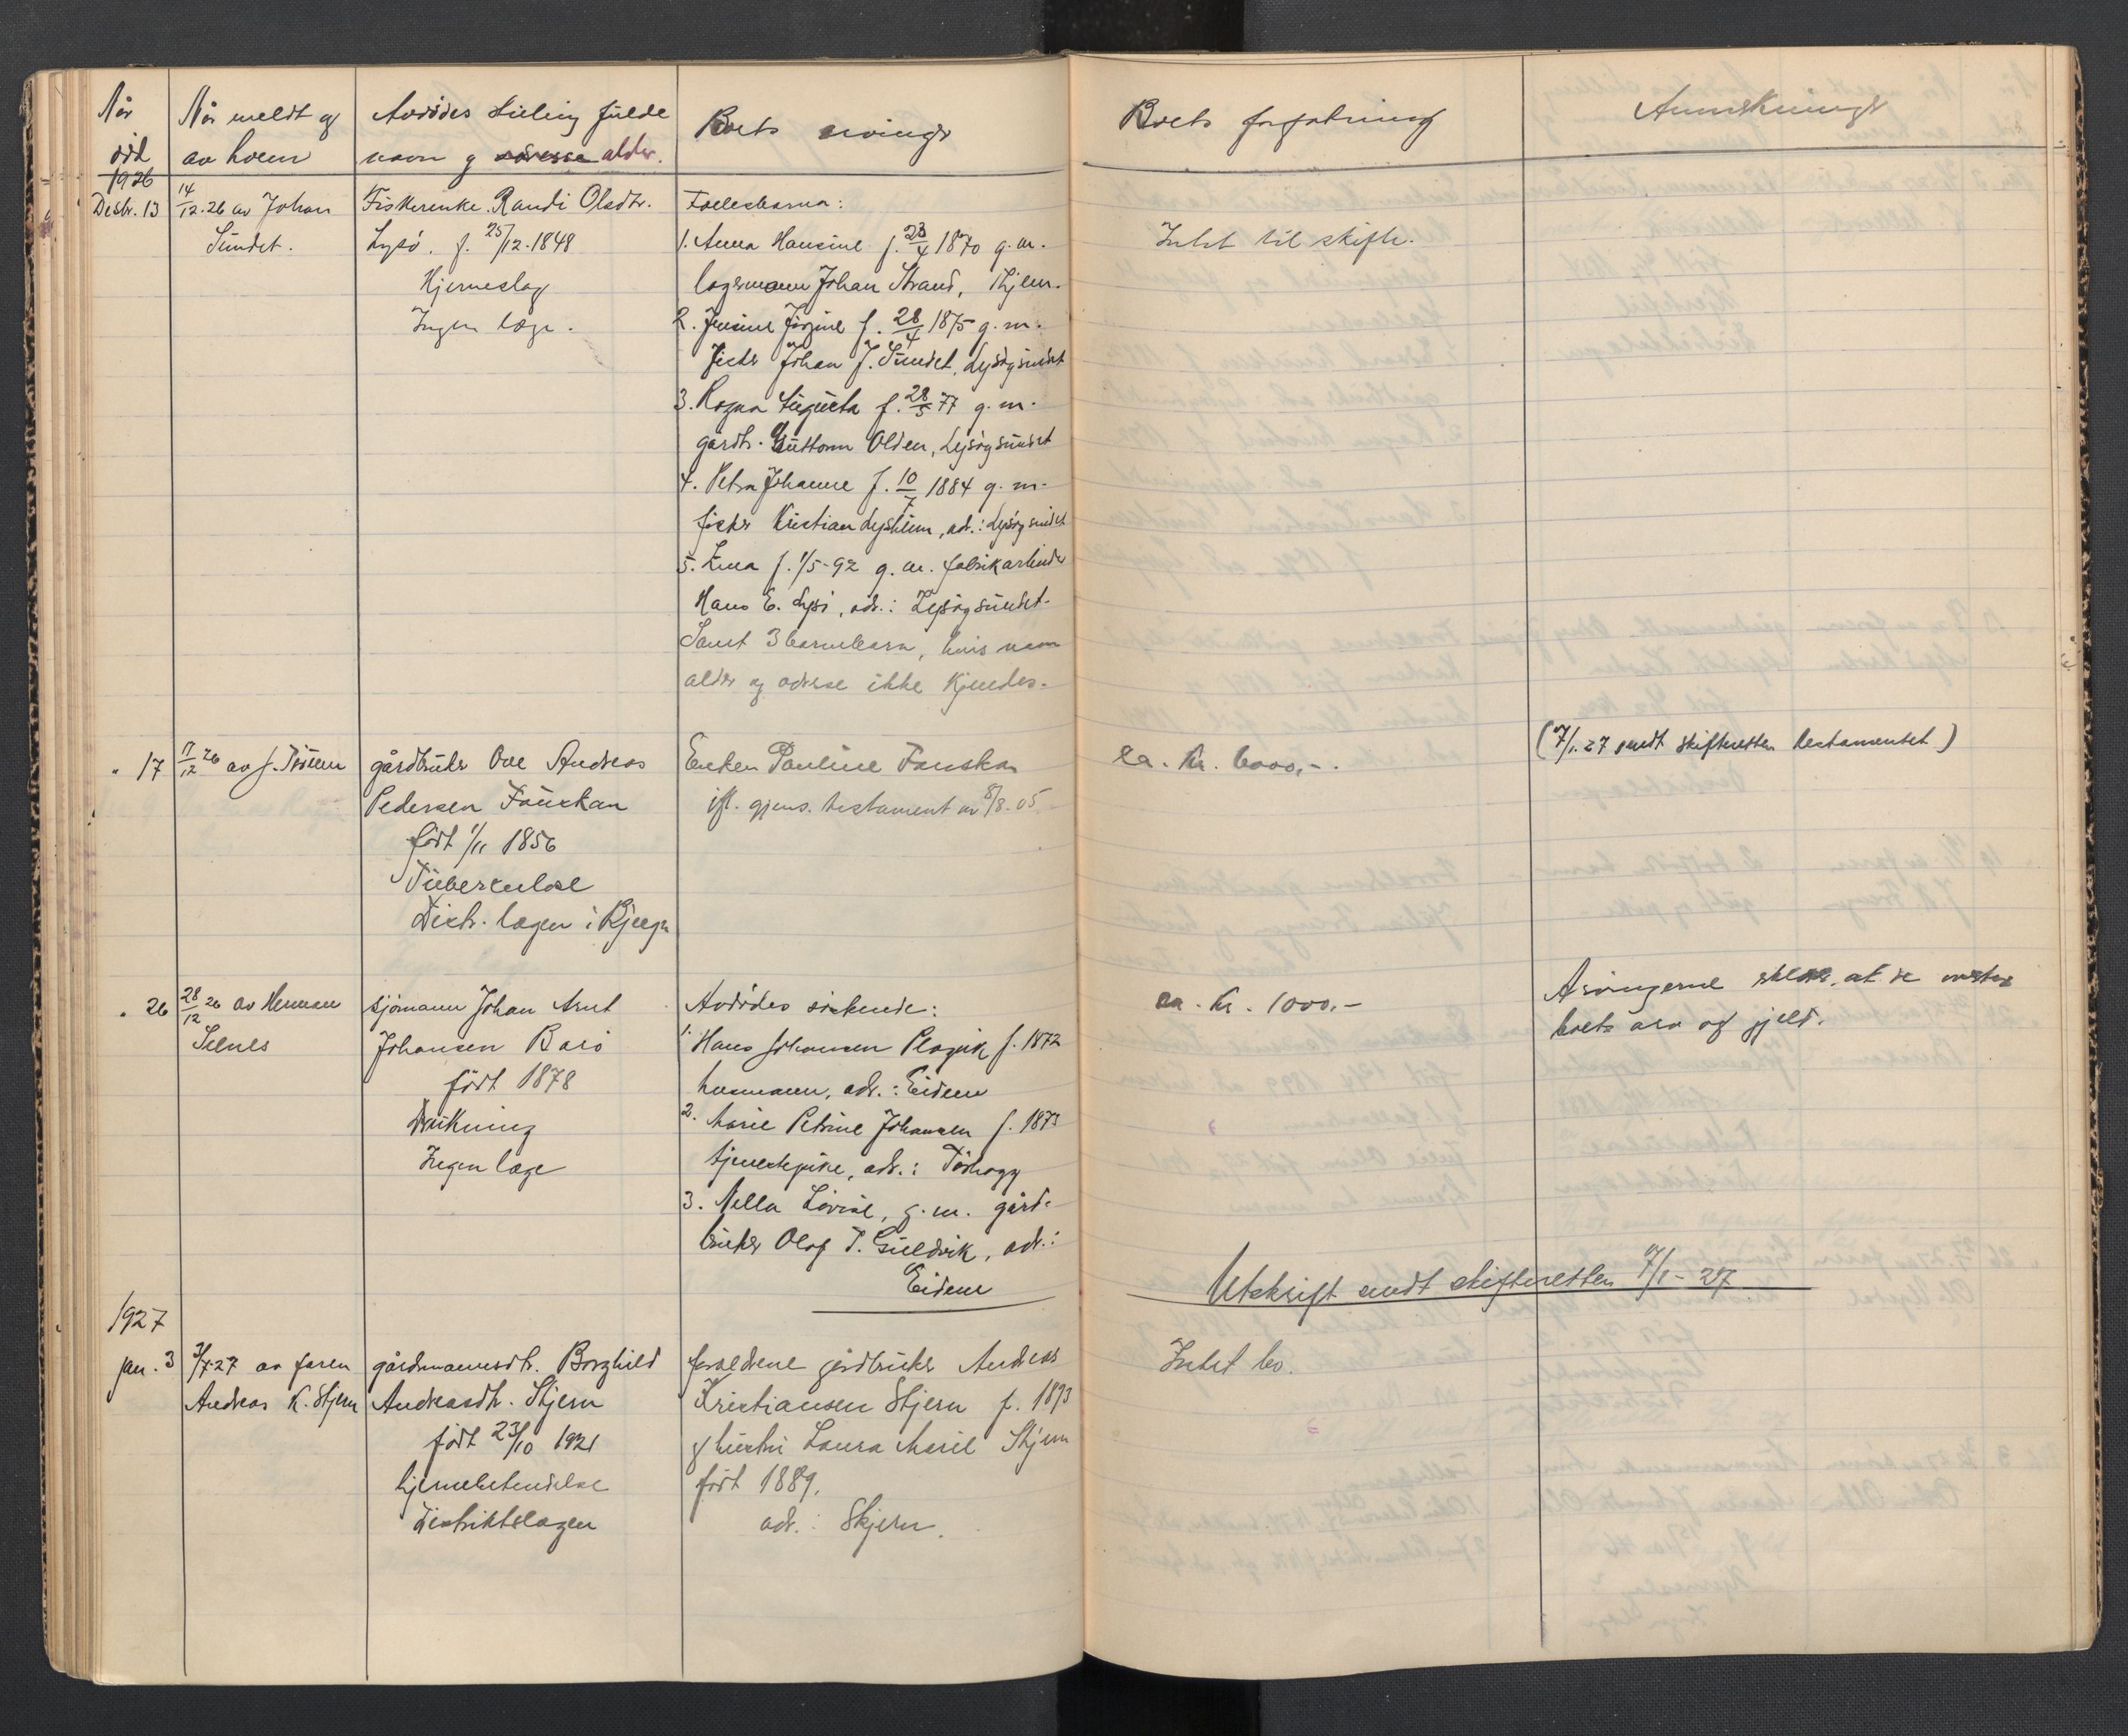 Når
død
Når meldt og
av hvem
Avdødes stilling fulde
navn og adresse alder.
Boets arvinger
Boets forfatning
Anmerkninger
1926
Desbr. 13
14/12.26 av Johan
Sundet.
Fiskerenke Randi Olsdtr.
Lysø. f. 25/12-1848
Hjerneslag
Ingen læge.
Fællesbarna:
1. Anna Hansine f. 23/4 1870 g.m.
lagermann Johan Strand, Thjem.
2. Jensine Jørgine f. 28/4 1875 g.m.
fisker Johan J. Sundet, Lysøysundet
3. Ragna Augusta f. 28/5 77 g.m.
gårdbr. Guttorm Olden, Lysøysundet
4. Petra Johanne f. 10/7 1884 g.m.
fisker Kristian Lysheim, adr.: Lysøysundet
5. Emma f. 1/5-92 g.m. fabrikarbeider
Hans E. Lysø, adr.: Lysøysundet.
Samt 3 barnebarn, hvis navn
alder og adresse ikke kjendes.
Intet til skifte.
" 17
17/12 26 av J.
gårdbruker Ove Andreas
Pedersen Fauskan
født 1/11 1856
Tuberkulose
Distr. lægen i Bjugn
Enken Pauline Fauskan
ifl. gjens. testament av 8/8-05
ca. kr. 6000,-.
(7/1.27 sendt skifteretten testamentet)
" 26
28/12 26 av Herman
Selnes
sjømann Johan Arnt
Johansen Barø
født 1878
Drukning
Ingen læge
Avdødes søskende:
1. Hans Johansen f. 1872
husmann, adr.: Eidem
2. Marie Petrine Johansen f. 1873
tjenestepike, adr.: Tårhogg
3. Nella Lovise, g.m. gård-
bruker Olaf T. Guldvik, adr.:
Eidem
ca. kr. 1000,-
Arvingerne at de overtar
boets arv og gjeld.
Utskrift sendt skifteretten 7/1-27
1927
jan. 3
3/1-27 av faren
Andreas K. Stjern
gårdmannsdtr. Borghild
Andreasdtr. Stjern
født 23/10 1921
hjernebetendelse
Distriktslægen
forældrene gårdbruker Andreas
Kristiansen Stjern f. 1893
og hustru Laura Marie Stjern
født 1889.
adr.: Stjern.
Intet bo.